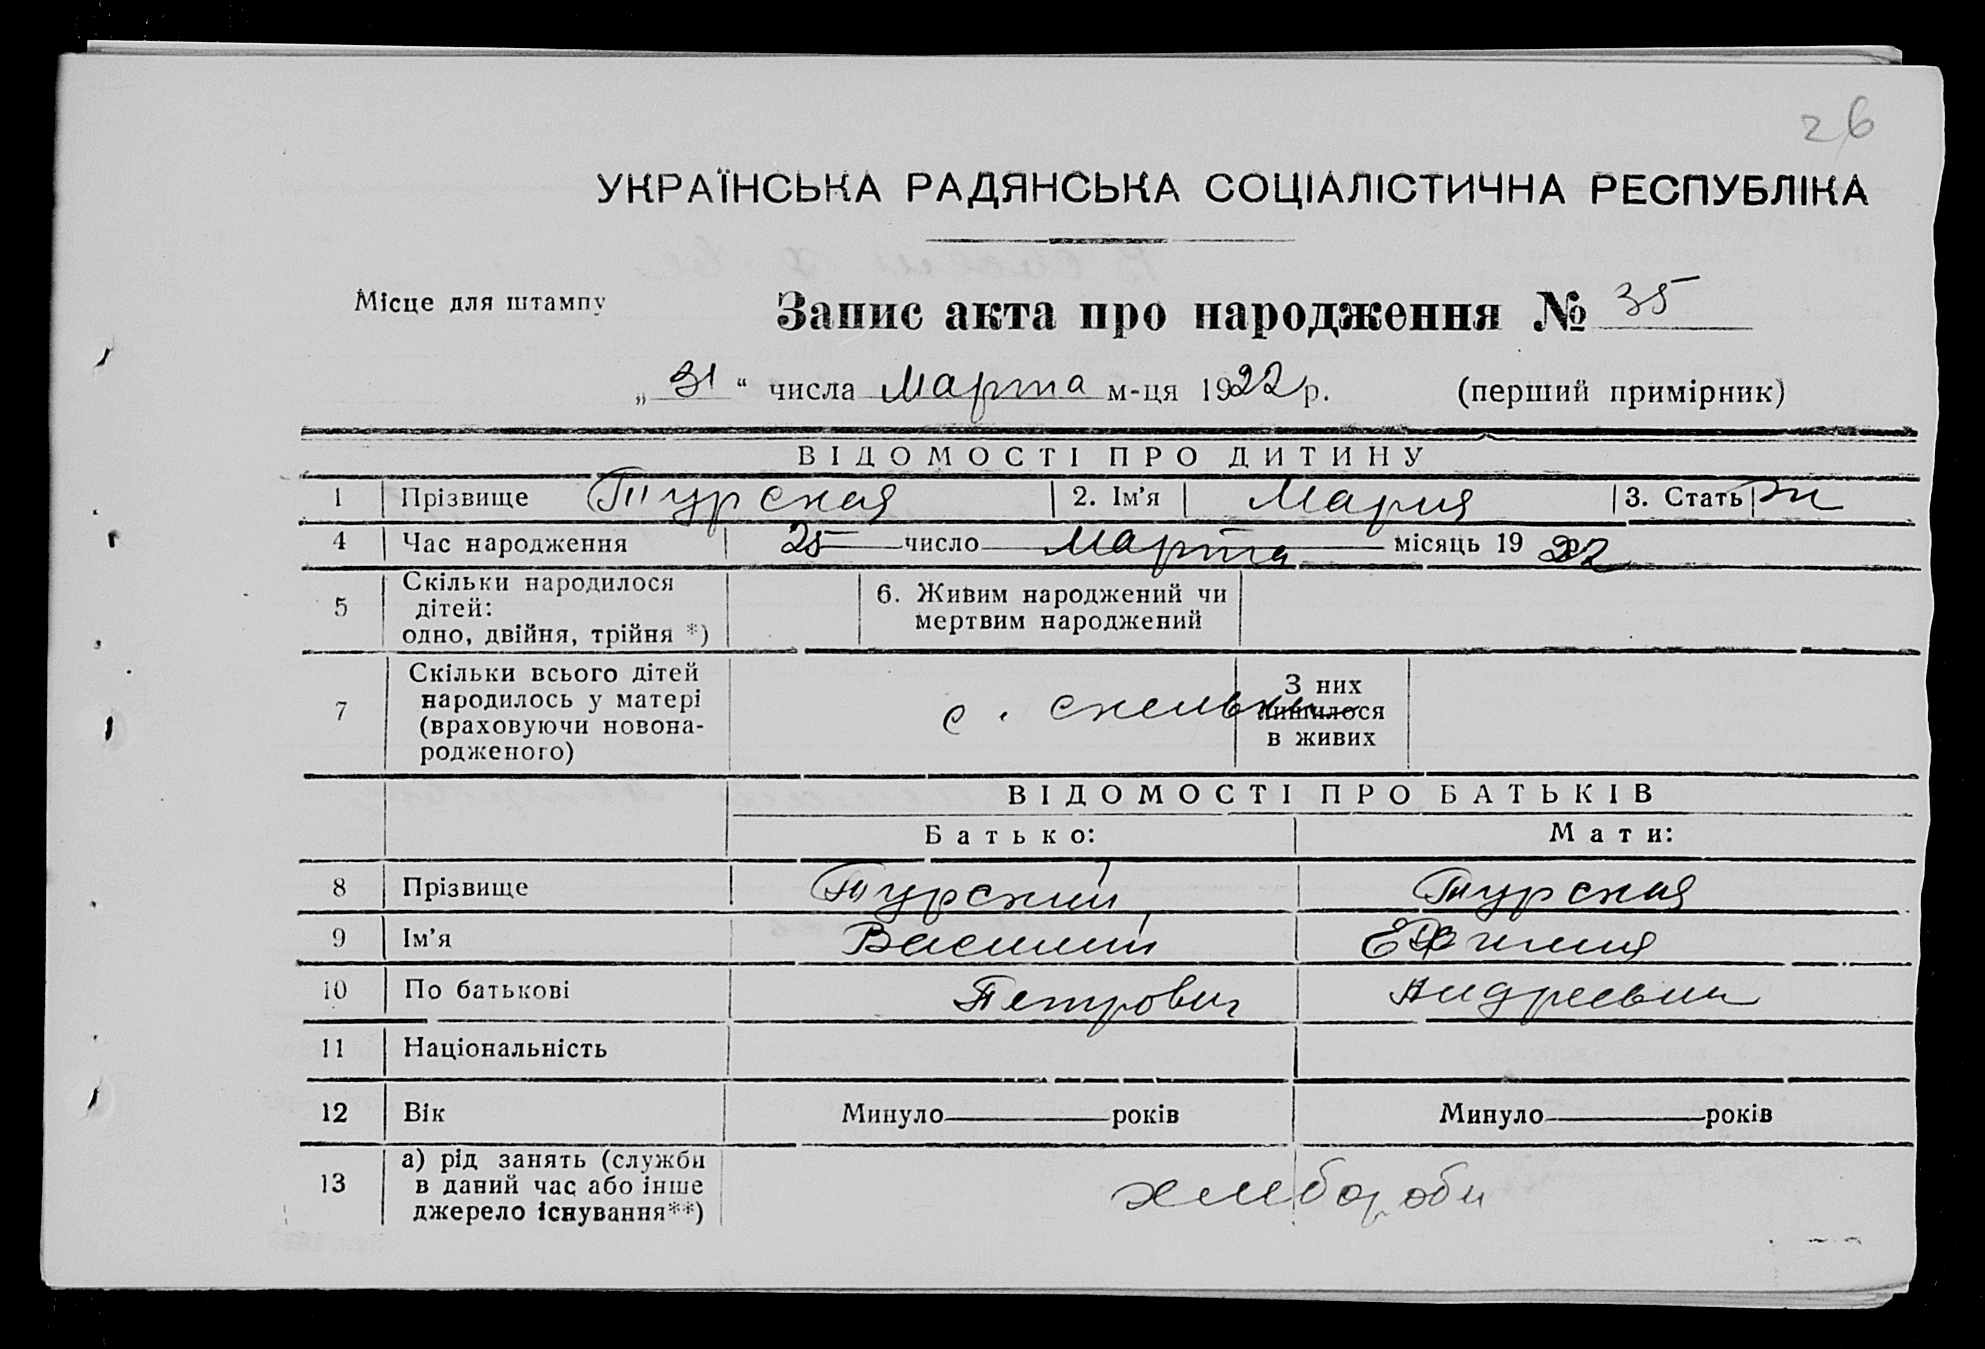 26
УКРАЇНСЬКА РАДЯНСЬКА СОЦІАЛІСТИЧНА РЕСПУБЛІКА
Місце для штампу
Запис акта про народження № 35
„ 31 “ числа Марта м-ця 1922 р. (перший примірник)
ВІДОМОСТІ ПРО ДИТИНУ
1 Прізвище Турская 2. Ім’я Мария 3. Стать ж
4 Час народження 25 число Марта місяць 19 22
5 Скільки народилося дітей: одно, двійня, трійня *) 6. Живим народжений чи мертвим народжений
7 Скільки всього дітей народилось у матері (враховуючи новонародженого) с. Скельки З них лишилося в живих
ВІДОМОСТІ ПРО БАТЬКІВ
Батько: Мати:
8 Прізвище Турский Турская
9 Ім’я Василий Ефимия
10 По батькові Петрович Андреевна
11 Національність
12 Вік Минуло років Минуло років
13 а) рід занять (служби в даний час або інше джерело існування**) хлебороби